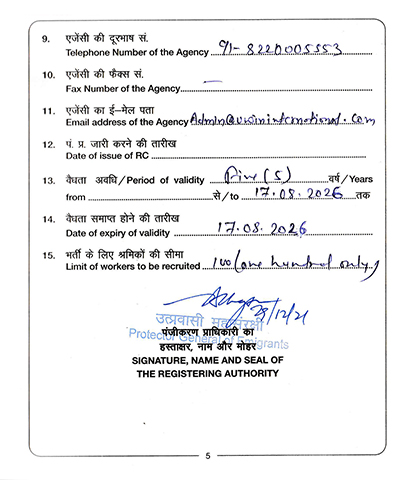 9. एजेंसी की दूरभाष सं.
Telephone Number of the Agency 91-8220005553
10. एजेंसी की फैक्स सं.
Fax Number of the Agency —
11. एजेंसी का ई–मेल पता
Email address of the Agency .com
12. पं. प्र. जारी करने की तारीख
Date of issue of RC
13. वैधता अवधि/Period of validity Five (5) वर्ष/Years
from से/to 17.08.2026 तक
14. वैधता समाप्त होने की तारीख
Date of expiry of validity 17.08.2026
15. भर्ती के लिए श्रमिकों की सीमा
Limit of workers to be recruited 100 (one hundred only.)
/12/21
उत्प्रवासी महासंरक्षी
Protector General of Emigrants
पंजीकरण प्राधिकारी का
हस्ताक्षर, नाम और मोहर
SIGNATURE, NAME AND SEAL OF
THE REGISTERING AUTHORITY
5